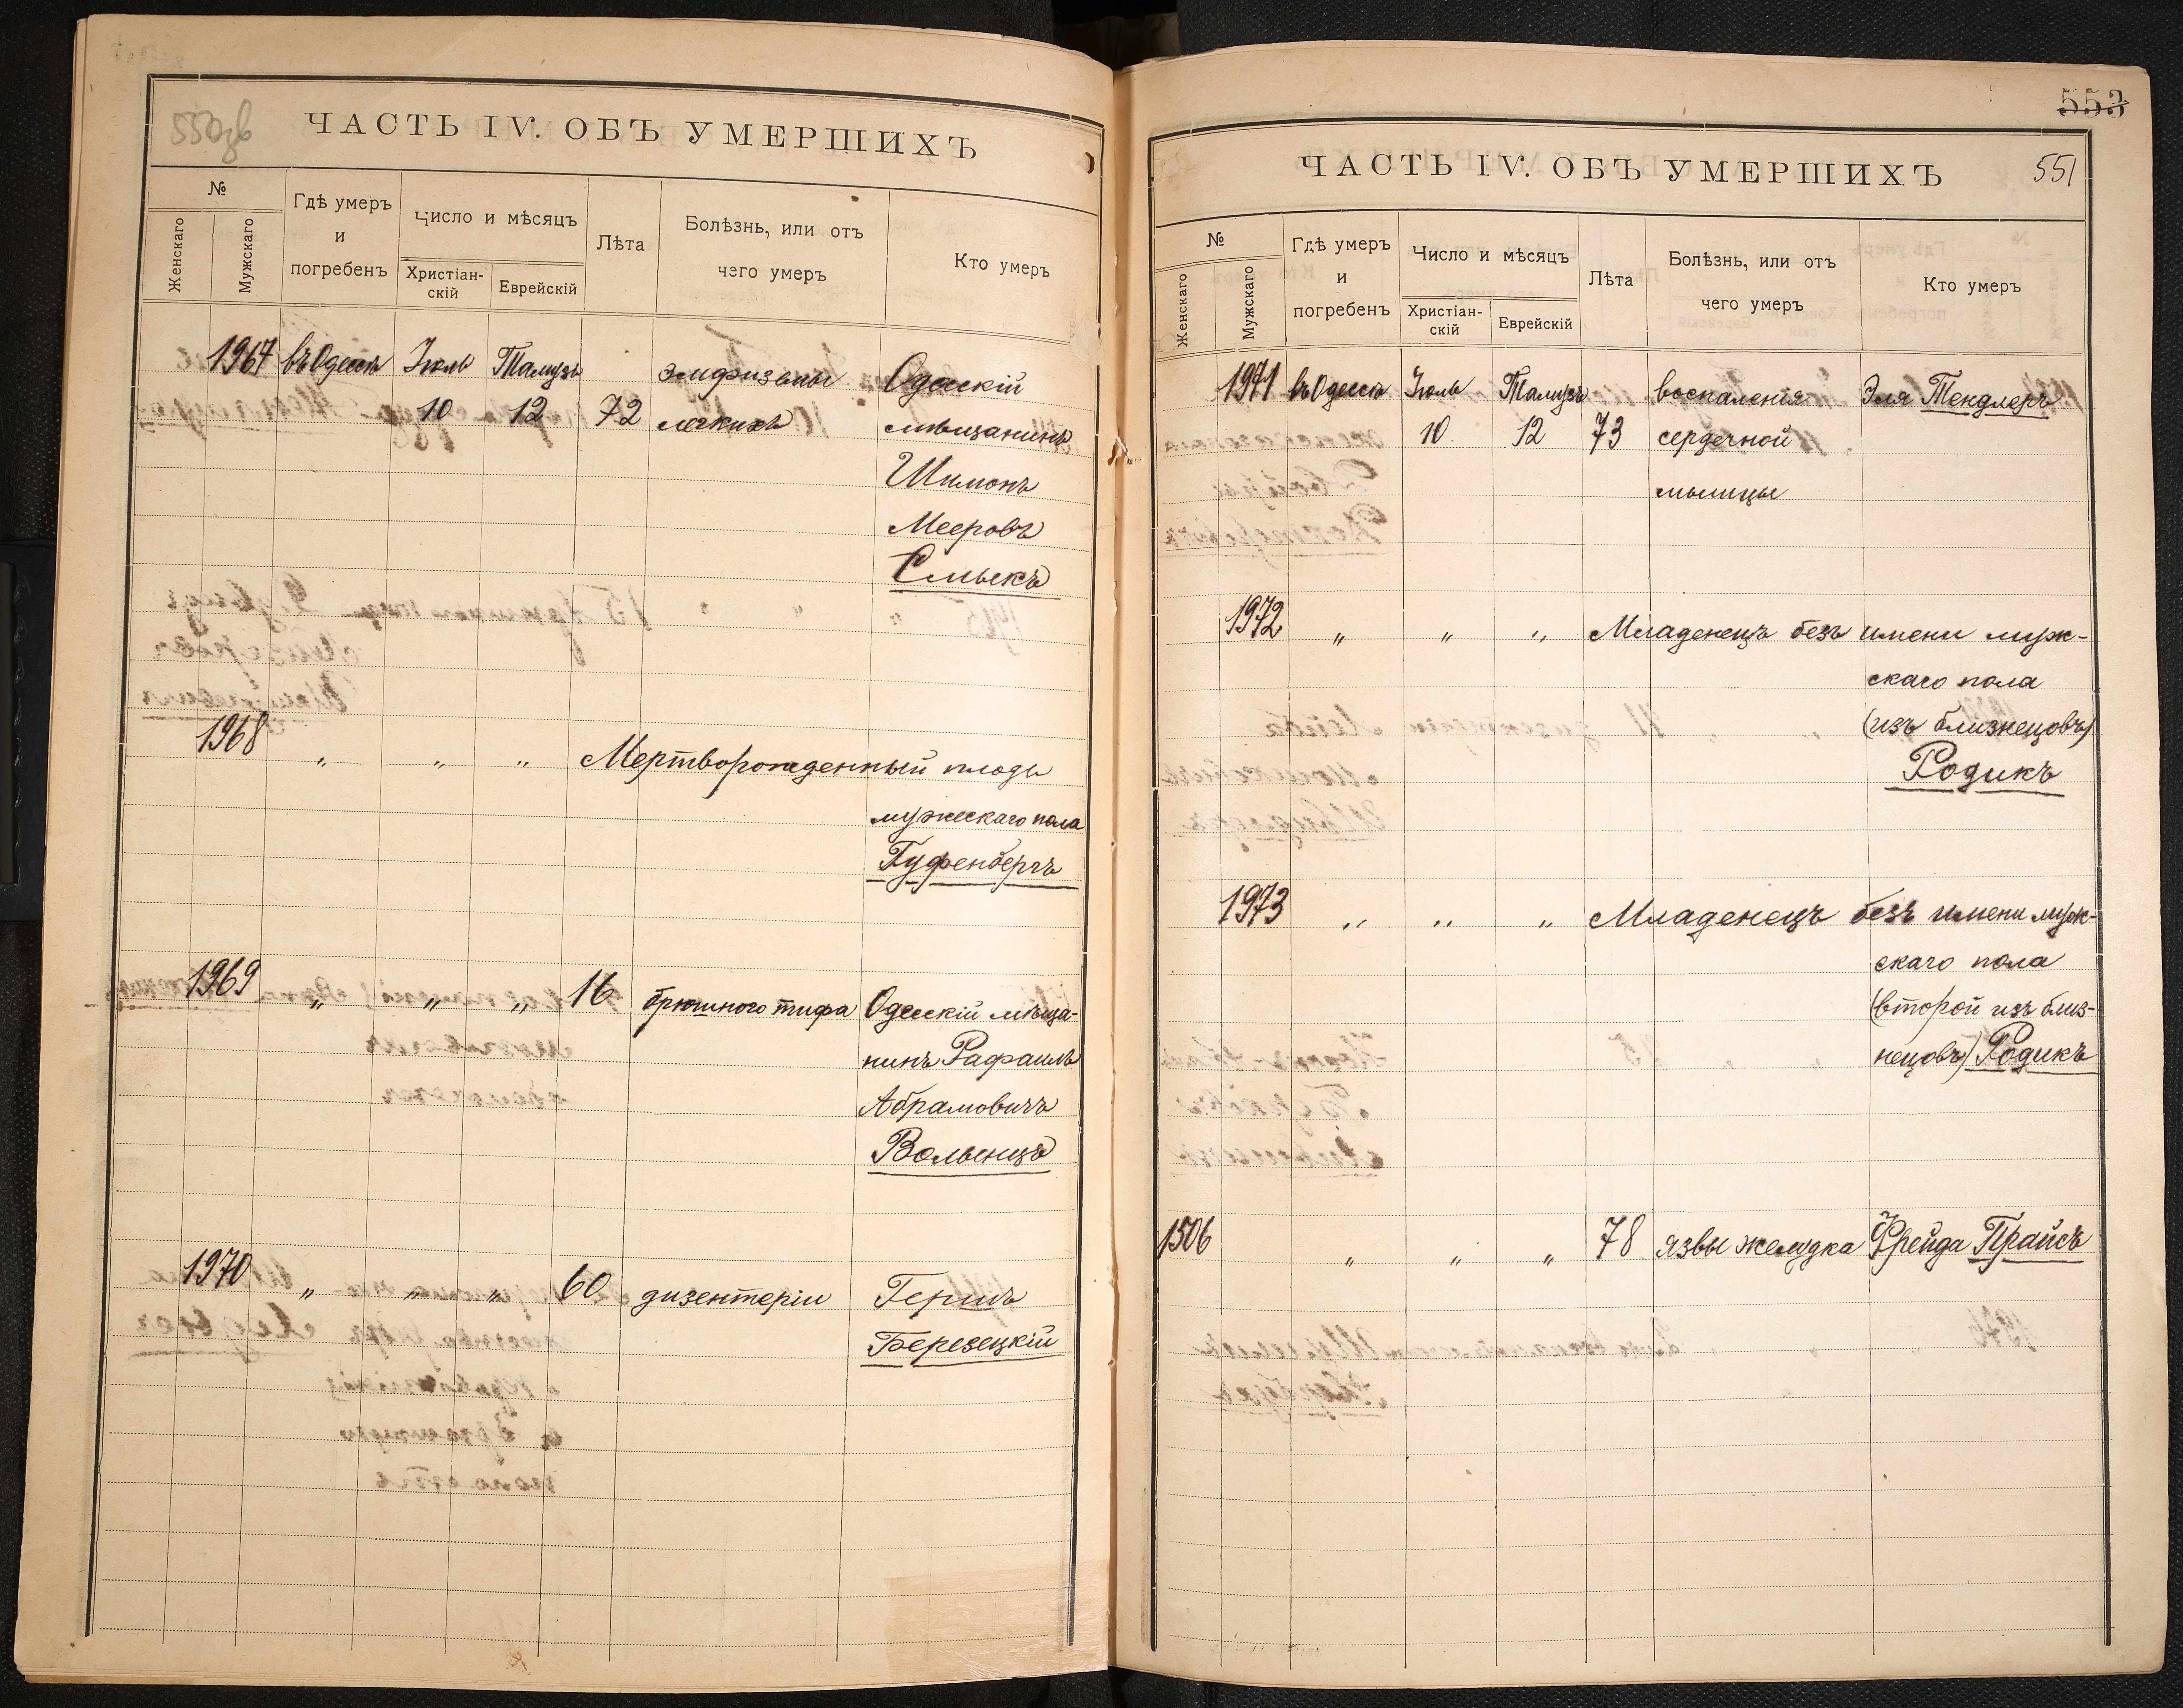 550об
ЧАСТЬ IV. ОБЪ УМЕРШИХЪ
№
Женскаго
Мужскаго
Гдѣ умеръ
и
погребенъ
Число и мѣсяцъ
Христіан-
скій
Еврейскій
Лѣта
Болѣзнь, или отъ
чего умеръ
Кто умеръ
1967 въ Одессѣ Іюль Тамузъ эмфиземы Одесскій
10 12 72 легкихъ мѣщанинъ
Шимонъ
Мееровъ
Смыкъ
1968 " " " Мертворожденный плодъ
мужескаго пола
Гуфенбергъ
1969 " " " 16 брюшного тифа Одесскій мѣща-
нинъ Рафаилъ
Абрамовичъ
Волынецъ
1970 " " " 60 дизентеріи Гершъ
Березецкій
553
ЧАСТЬ IV. ОБЪ УМЕРШИХЪ
551
№
Женскаго
Мужскаго
Гдѣ умеръ
и
погребенъ
Число и мѣсяцъ
Христіан-
скій
Еврейскій
Лѣта
Болѣзнь, или отъ
чего умеръ
Кто умеръ
1971 въ Одессѣ Іюль Тамузъ воспаленія Эля Тендлеръ
10 12 73 сердечной
мышцы
1972 " " " Младенецъ безъ имени муж-
скаго пола
(изъ близнецовъ)
Родикъ
1973 " " " Младенецъ безъ имени муж-
скаго пола
(второй изъ близ-
нецовъ) Родикъ
1506 " " " 78 язвы желудка Фрейда Прайсъ